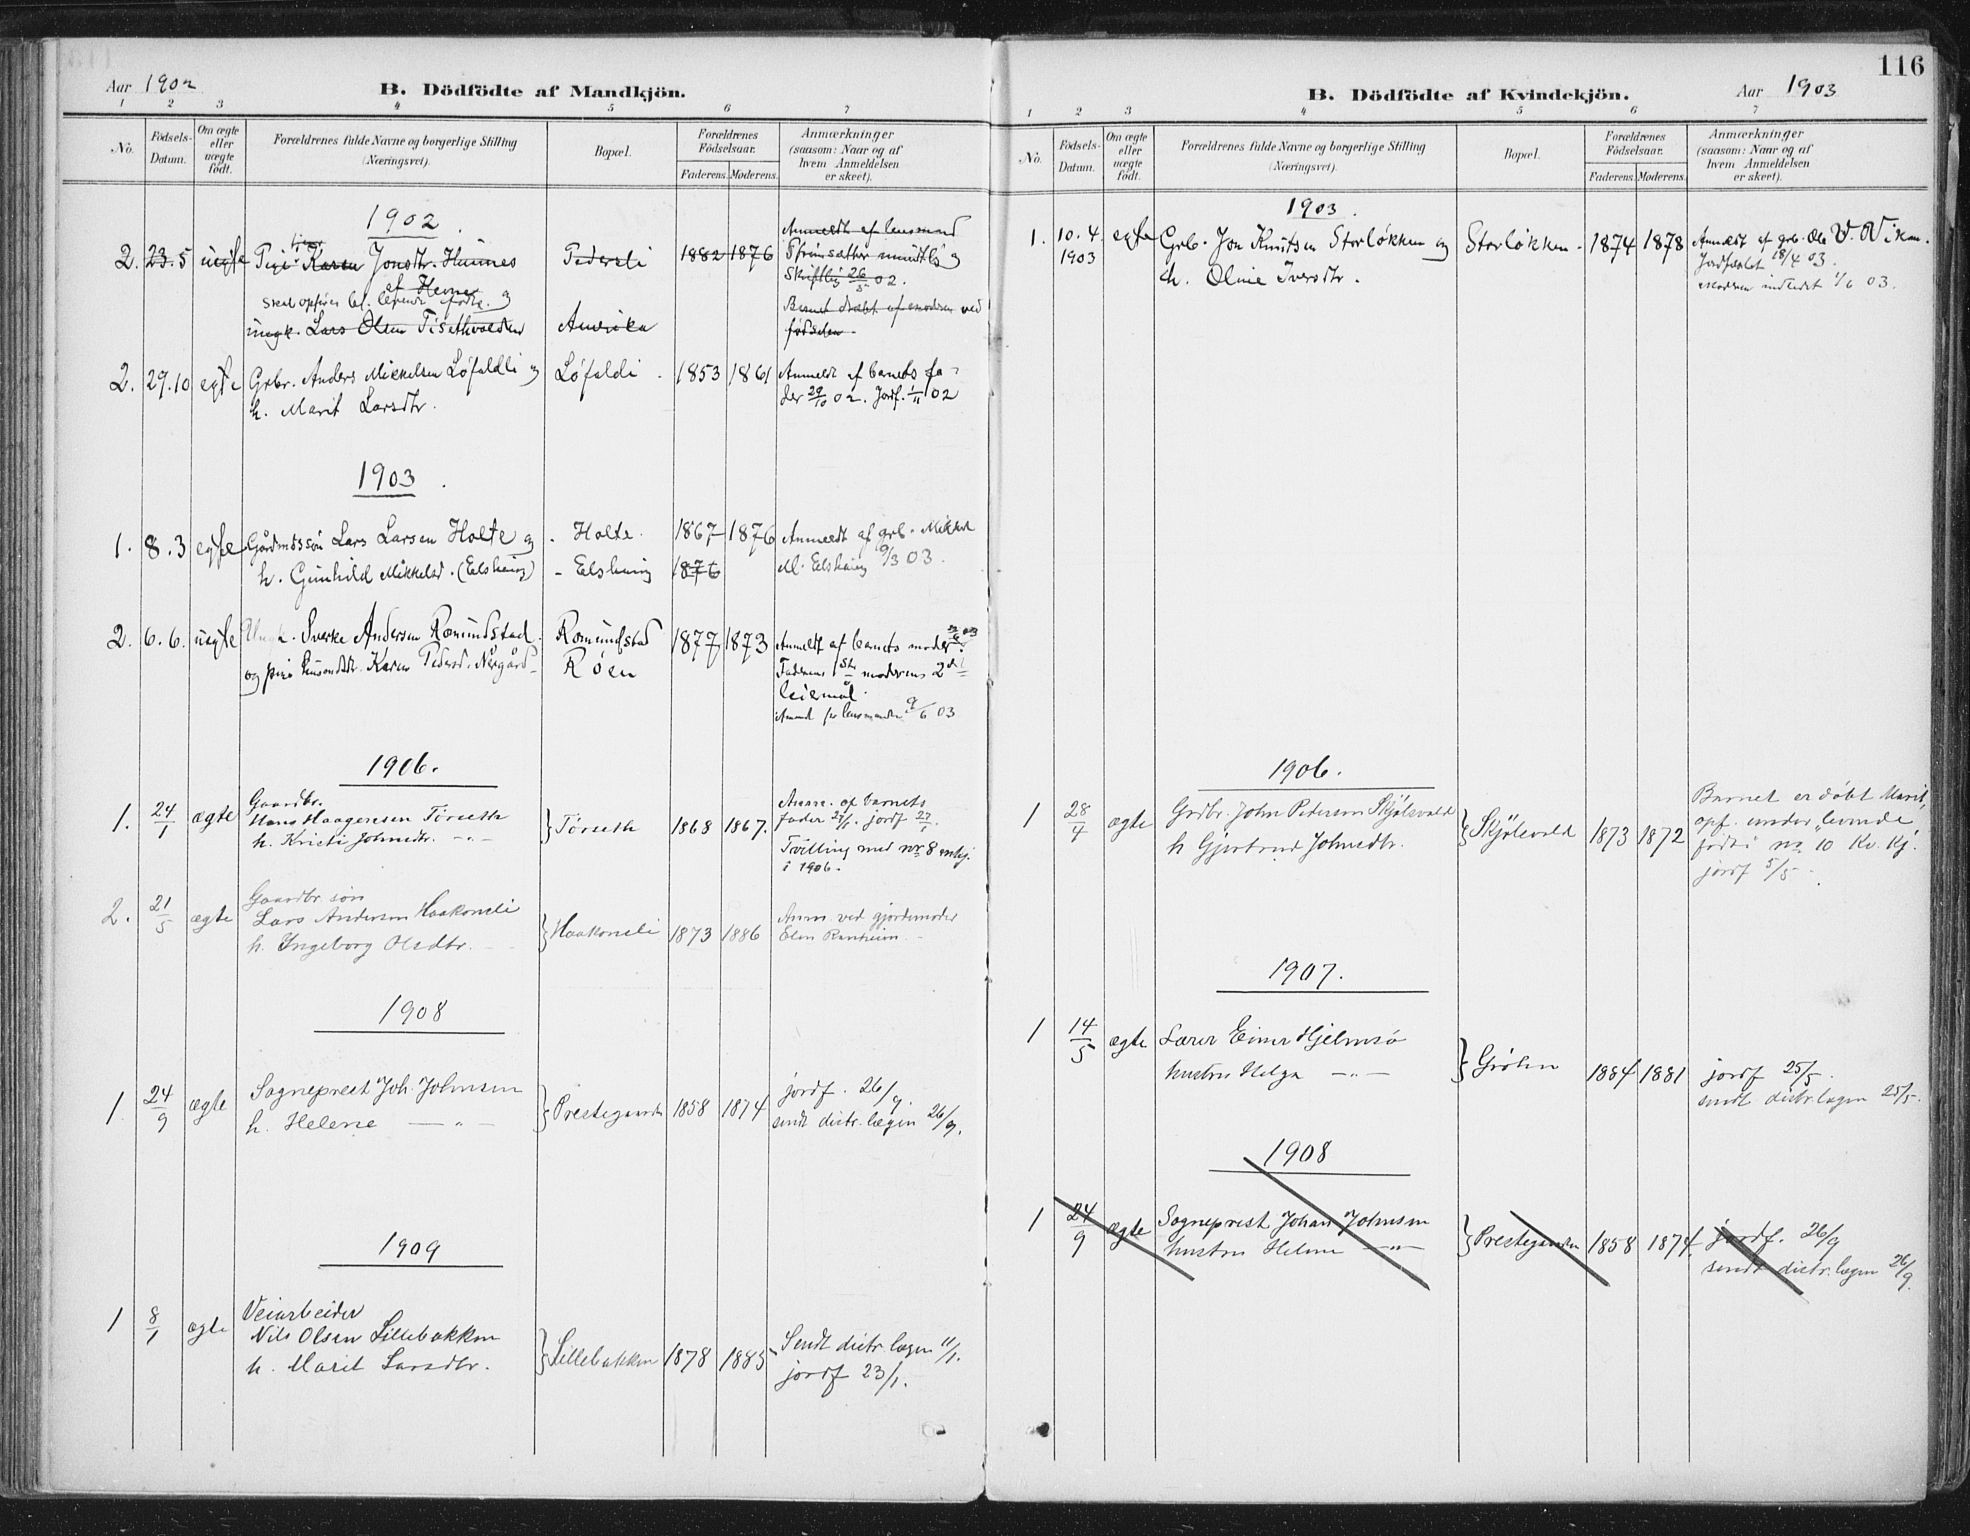 Aar 1902
B. Dödfödte af Mandkjön.
1 2 3 4 5 6 7
No.
Födsels-Datum.
Om ægte eller uægte födt.
Forældrenes fulde Navne og borgerlige Stilling (Næringsvei).
Bopæl.
Forældrenes Födselsaar.
Faderens. Moderens.
Anmærkninger (saasom: Naar og af hvem Anmeldelsen er skeet).
1902
2. 23.5 uegte Pige Karen Jonsdtr. Haünes Pedersli 1882 1876 Anmeldt af lensmand
af Hevne
mundtlig og
Skriftlig 26/5 02.
skal opføres bl. levende fødte. og
ungk. Lars Olsen Tisethvolden Amerika
Barnet dræbt af moderen ved
fødselen.
2. 29.10 egte Grbr. Anders Mickelsen Løfaldli og Løfaldli 1853 1861 Anmeldt af barnets fa-
h. Marit Larsdtr.
der 29/10 02. Jordf. 1/11 02
1903
1. 8.3 egte Gårdmdssøn Lars Larsen Holte og - Holte. 1867 1876 Anmeldt af grb. Mikkel
h. Gunhild Mikkelsd. (Eelshaug) - Eelshaug 1876 M. Eelshaug 9/3 03.
2. 6.6. uegte Ungk. Sverke Andersen Romundstad Romundstad 1877 1873 Anmeldt af barnets moder
og pige Karen Pedersd. Nergård Røen
Faderens 1ste moderens 2det
leiemål.
Anm. for lensmanden 9/6 03
1906.
1. 24/1 ægte Gaardbr.
Hans Haagensen Törseth
h. Kristi Johnsdtr. -„-
} Törseth 1868 1867.
Anm. af barnets
fader 27/1. jordf 27/1.
Tvilling med nr 8 mkj.
i 1906.
2. 21/5 ægte Gaardbr. søn
Lars Andersen Haakonsli
h. Ingeborg Olsdtr.
} Haakonsli 1873 1886
Anm. ved gjordemoder
Elen Ranheim.
1908
1. 24/9 ægte Sogneprest Joh. Johnsen
h. Helene —„—
} Prestegaarden 1858 1874
jordf. 26/9.
sendt distr. lægen 26/9.
1909
1 8/1 ægte Veiarbeider
Nils Olsen Lillebakken
h. Marit Larsdtr.
} Lillebakken 1878 1885
Sendt distr. lægen 11/1.
jordf 23/1.
116
B. Dödfödte af Kvindekjön.
Aar 1903
1 2 3 4 5 6 7
No.
Födsels-Datum.
Om ægte eller uægte födt.
Forældrenes fulde Navne og borgerlige Stilling (Næringsvei).
Bopæl.
Forældrenes Födselsaar.
Faderens. Moderens.
Anmærkninger (saasom: Naar og af hvem Anmeldelsen er skeet).
1903.
1. 10.4. 1903 egte Grb. Jon Knutsen Storløkken og Storløkken. 1874 1878 Anmeldt af grb. Ole V. Vikan.
h. Oline Iversdtr.
Jordfæstet 18/4 03.
Moderen indledet 1/6 03.
1906.
1 28/4 ægte Grdbr. John Pedersen Skjölsvold
h Gjertrud Johnsdtr.
} Skjölsvold 1873 1872
Barnet er döbt Marit,
opf. under „levende
födte" nr 10 Kv. kj.
jordf 5/5.
1907.
1 14/5 ægte Lærer Einer Hjelmsö
hustru Helga —„—
} Gröten 1884 1881 jordf 25/5.
sendt distr. lægen 25/5.
1908
1 24/9 ægte Sogneprest Johan Johnsen
hustru Helene —„—
} Prestegaarden 1858 1874 jordf. 26/9
sendt distr. lægen 26/9.